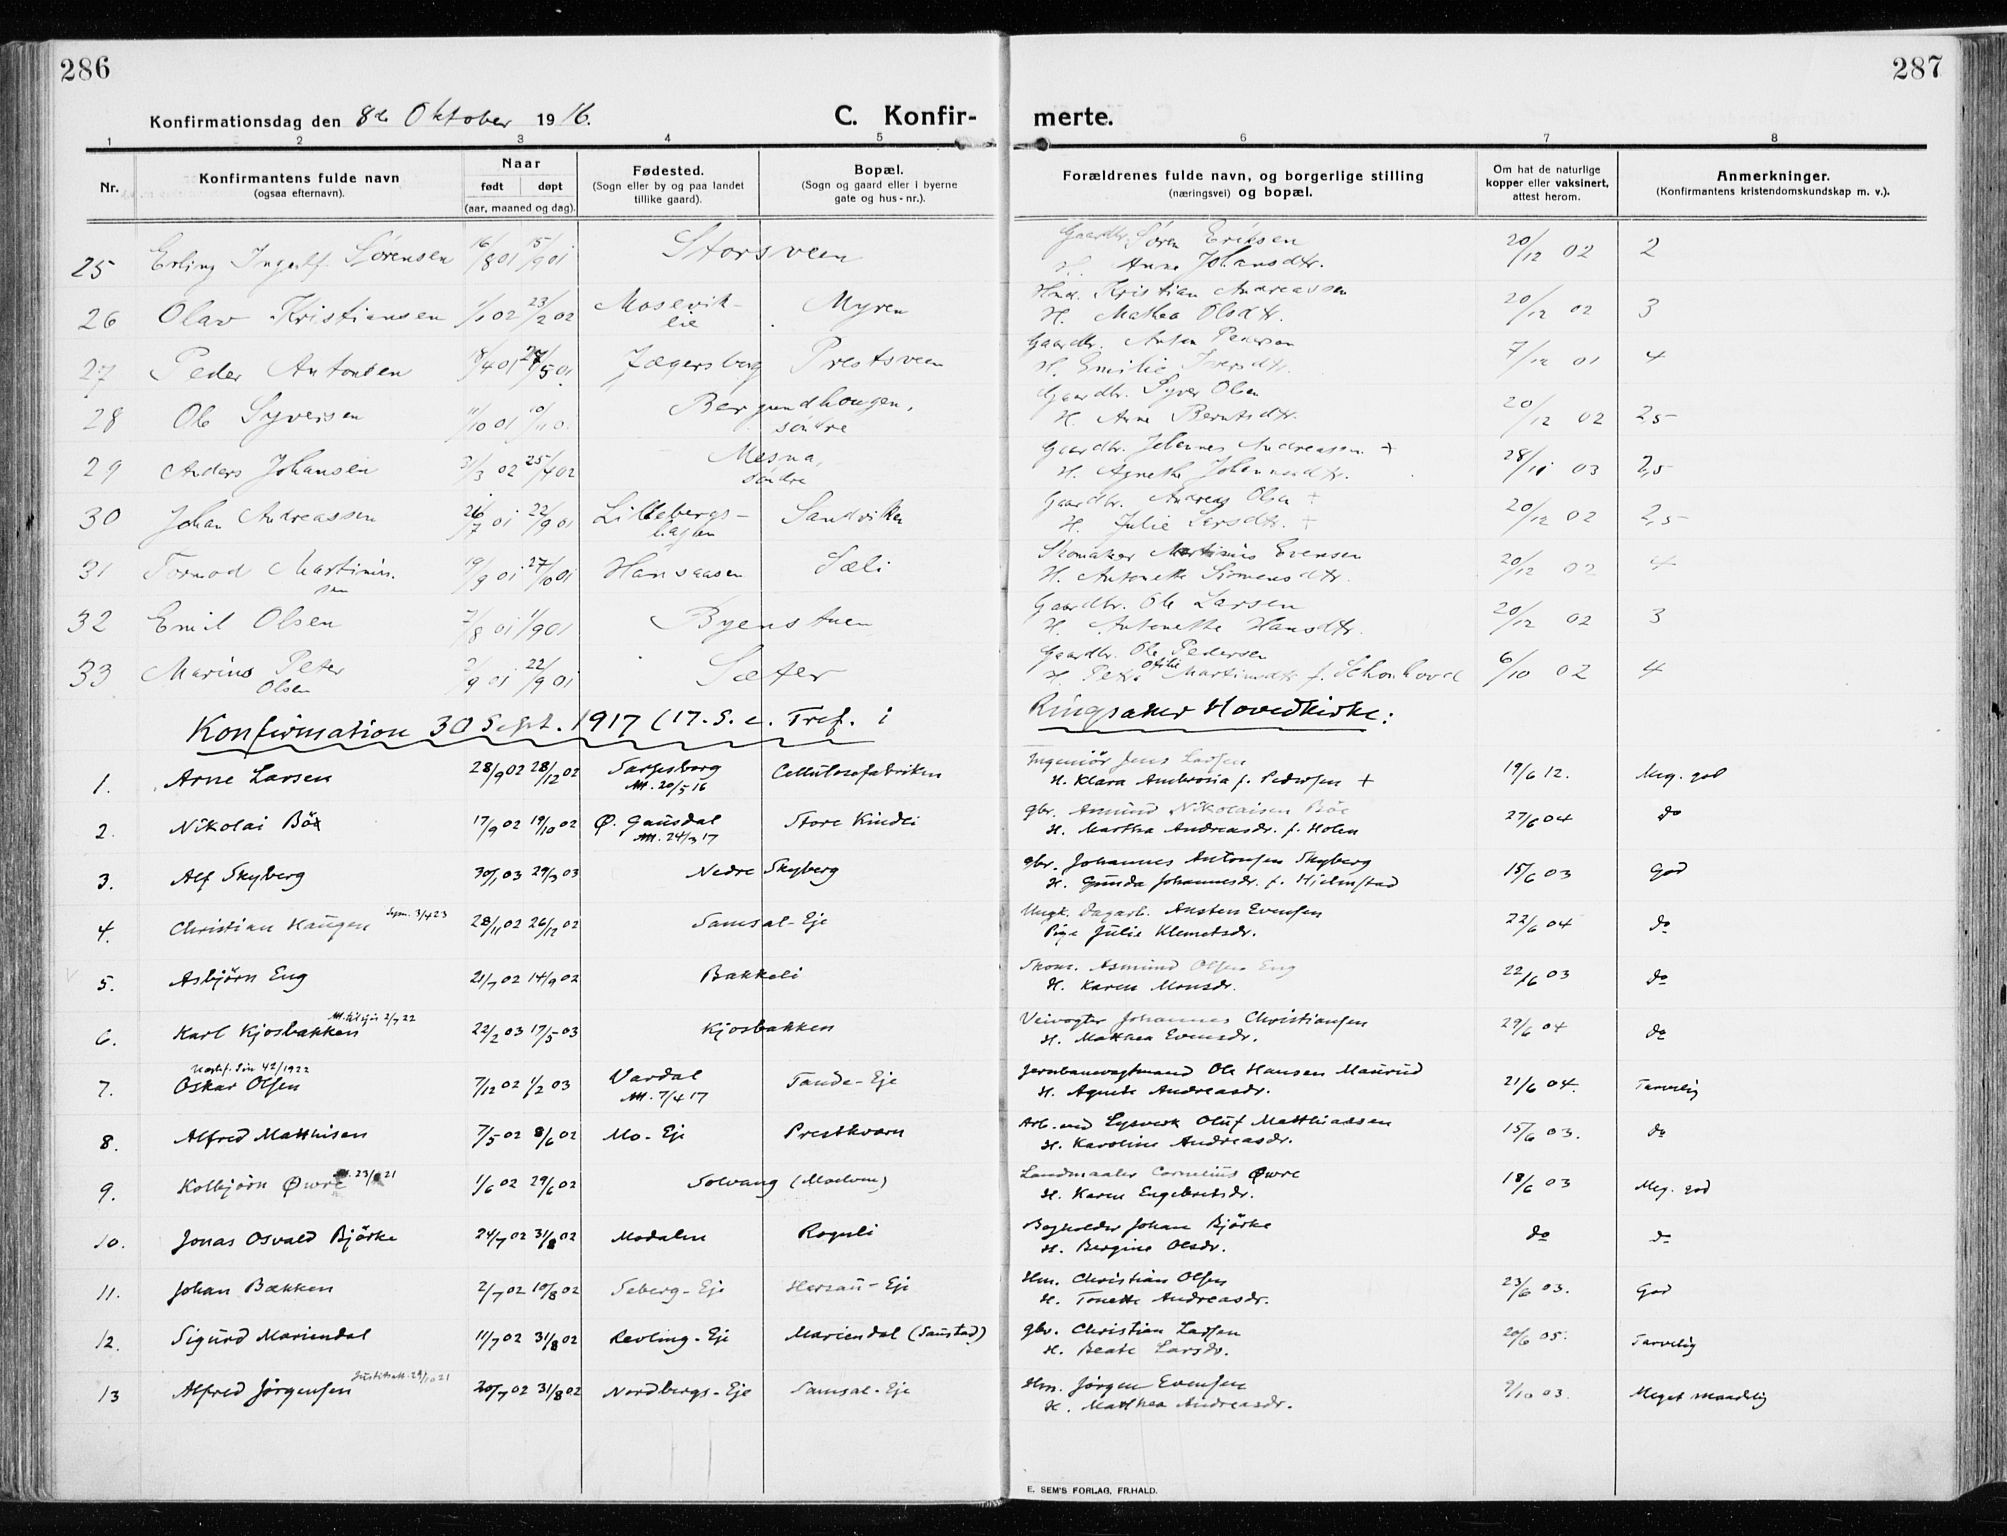 286
287
Konfirmationsdag den 8de Oktober 1916.
C. Konfir-
merte.
1 2 3 4 5 6 7 8
Nr.
Konfirmantens fulde navn
(ogsaa efternavn).
Naar
født døpt
(aar, maaned og dag).
Fødested.
(Sogn eller by og paa landet
tillike gaard).
Bopæl.
(Sogn og gaard eller i byerne
gate og hus-nr.).
Forældrenes fulde navn, og borgerlige stilling
(næringsvei) og bopæl.
Om hat de naturlige
kopper eller vaksinert,
attest herom.
Anmerkninger.
(Konfirmantens kristendomskundskap m. v.).
25 Erling Ingolf Sørensen 16/8 01 15/9 01 Storsveen Gaardbr. Søren Eriksen 20/12 02 2
H. Anne Johansdtr.
26 Olav Kristiansen 1/1 02 23/2 02 Mosevik- Myren Hmd. Kristian Andreassen 20/12 02 3
lie H. Mathea Olsdtr.
27 Peder Antonsen 8/4 01 27/5 01 Jægersberg Prestsveen Gaardbr. Anton Pedersen 7/12 01 4
H. Emilie Iversdtr.
28 Ole Syversen 11/10 01 10/11 01 Bergundhougen, Gaardbr. Syver Olsen 20/12 02 2,5
søndre H. Anne Berntsdtr.
29 Anders Johansen 3/3 02 25/4 02 Mesna, Gaardbr. Johannes Andreassen + 28/11 03 2,5
søndre H. Agnethe Johannesdtr.
30 Johan Andreassen 26/7 01 22/9 01 Lillebergs- Sandviken Gaardbr. Andreas Olsen + 20/12 02 2,5
hagen H. Julie Larsdtr. +
31 Tormod Martinius. 19/9 01 27/10 01 Hansaasen Sæli Skomaker Martinius Evensen 20/12 02 4
sen H. Antonette Simensdtr.
32 Emil Olsen 7/8 01 1/9 01 Byenstuen Gaardbr. Ole Larsen 20/12 02 3
H. Antonette Hansdtr.
33 Marius Peter 2/9 01 22/9 01 Sæter Gaardbr. Ole Pedersen 6/10 02 4
Olsen H. Petra Otilie Martinsdtr f. Schonhovd
Konfirmation 30 Sept. 1917 (17. S. e. Tref. i Ringsaker Hovedkirke:
1. Arne Larsen 28/9 02 28/12 02 Sarpsborg Cellulosefabriken Ingeniör Jens Larsen 19/6 12. Meg. god
Att. 20/5 16 H. Klara Ambrosia f. Pedersen +
2. Nikolai Böe 17/9 02 19/10 02 Ø. Gausdal Store Kindli gbr. Amund Nikolaisen Böe 27/6 04 do
Att. 24/3 17 H. Martha Andreasdr. f. Holen
3. Alf Skyberg 30/1 03 29/3 03 Nedre Skyberg gbr. Johannes Antonsen Skyberg 15/6 03 God
H. Gunda Johannesdr. f. Hjelmstad
4. Christian Haugen 3/4 23 28/11 02 26/12 02 Samsal-Eje Ungk. dagarb. Austen Evensen 22/6 04 do
Pige Julie Klemetsdr.
5. Asbjörn Eng 21/7 02 14/9 02 Bakkeli Skom. Asmund Olsen Eng 22/6 03 do
H. Karen Monsdr.
6. Karl Kjosbakken 2/7 22 22/2 03 17/5 03 Kjosbakken Veivogter Johannes Christiansen 29/6 04 do
H. Mathea Evensdr.
7. Oskar Olsen 42/1922 7/12 02 1/2 03 Vardal Tande-Eje Jernbanevagtmand Ole Hansen Maurud 21/6 04. Tarvelig
Att. 7/4 17 H. Agnete Andreasdr.
8. Alfred Mathisen 7/5 02 8/6 02 Mo-Eje Prestkværn Arb. ved Lysverk Oluf Matthiassen 15/6 03. do
H. Karoline Andreasdr.
9. Kolbjörn Øwre 1/6 02 29/6 02 Solvang (Moelven) Landmaaler Cornelius Øwre 18/6 03 Meg. god
H. Karen Engebretsdr.
10. Jonas Osvald Bjørke 24/7 02 31/8 02 Modalen Rognli Bogholder Johan Bjørke do do
H. Bergine Olsdr.
11. Johan Bækken 2/7 02 10/8 02 Seberg-Eje Hersau-Eje Hm. Christian Olsen 23/6 03. God
H. Tonette Andreasdr.
12. Sigurd Mariendal 11/7 02 31/8 02 Revling-Eje Mariendal (Saustad) gbr. Christian Larsen 20/6 05. Tarvelig
H. Beate Larsdr.
13 Alfred Jørgensen 20/7 02 31/8 02 Nordbergs-Eje Samsal-Eje Hm. Jørgen Evensen 9/10 03. Meget maadelig
H. Mathea Andreasdr.
E. SEM'S FORLAG, FR.HALD.